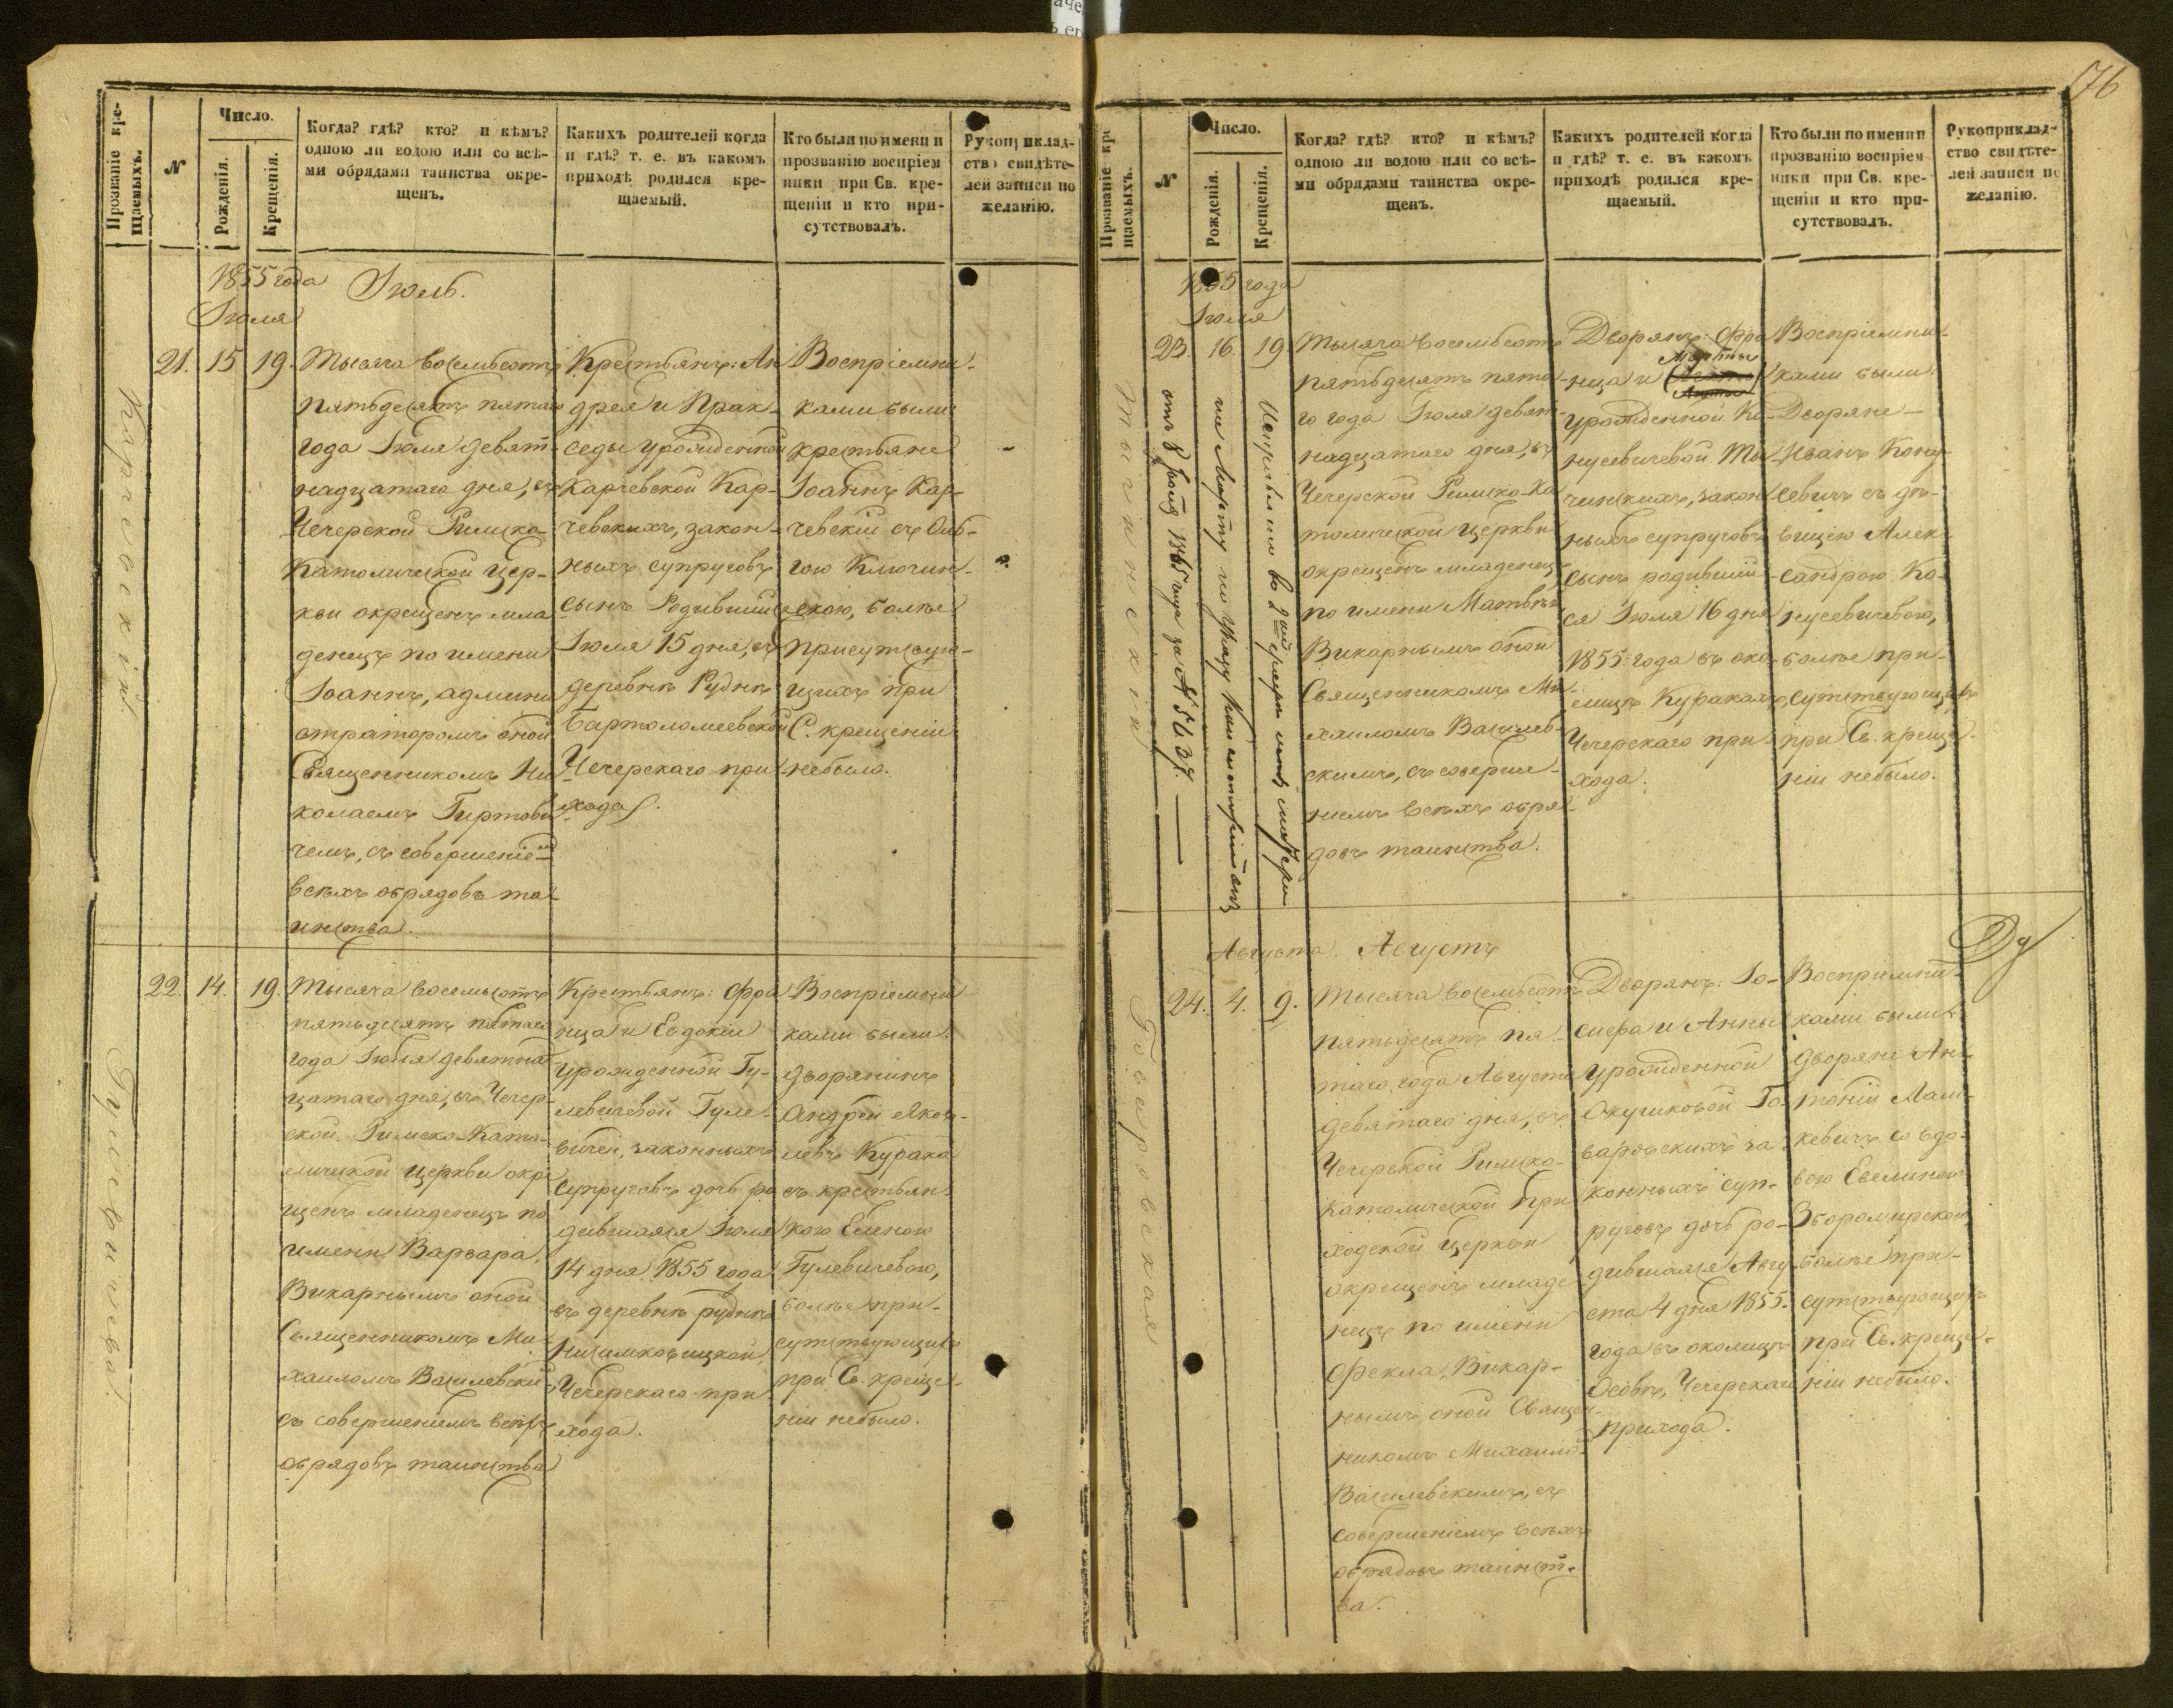 Прозваніе кре-
щаемыхъ.
№
Число.
Рожденія.
Крещенія.
Когда? гдѣ? кто? и кѣмъ?
одною ли водою или со всѣ-
ми обрядами таинства окре-
щенъ.
Какихъ родителей когда
и гдѣ? т. е. въ какомъ
приходѣ родился кре-
щаемый.
Кто были по имени и
прозванію воспріем
ники при Св. кре-
щеніи и кто при-
сутствовалъ.
Рукоприклад-
ство свидѣте-
лей записи по
желанію.
1855 года
Іюль.
Іюля
Карчевскій
21. 15 19.
Тысяча восемьсотъ
пятьдесятъ пятаго
года Іюля девят-
надцатаго дня, въ
Чечерской Римско-
Католической Цер-
кви окрещенъ мла
денецъ по имени
Іоаннъ, админи
страторомъ оной
Священникомъ Ни
колаемъ Гиртови
чемъ, съ совершеніемъ
всѣхъ обрядовъ та-
инства.
Крестьянъ: Ан
дрея и Прак-
седы урожденной
Карчевской Кар-
чевскихъ, закон-
ныхъ супруговъ
сынъ Родившійся
Іюля 15 дня, въ
деревнѣ Руднѣ
Бартоломеевской
Чечерскаго при
хода.
Воспріемни-
ками были
крестьяне
Іоаннъ Кар-
чевскій съ Оль-
гою Ключин-
скою, болѣе
присутствую-
щихъ при
С. крещеніи
небыло.
Гулевичева
22. 14. 19.
Тысяча восемьсотъ
пятьдесятъ пятаго
года Іюля девятнад
цатаго дня, въ Чечер-
ской Римско-Като-
лической Церкви окре
щенъ младенецъ по
имени Варвара,
Викарнымъ оной
Священникомъ Ми
хаиломъ Василевски
съ совершеніемъ всѣхъ
обрядовъ таинства
Крестьянъ: Фра
нца и Евдокіи
урожденной Гу-
левичевой Гуле-
вичей, законныхъ
супруговъ дочь ро
дившаяся Іюля
14 дня 1855 года
въ деревнѣ Руднѣ
Нисимковицкой,
Чечерскаго при
хода.
Воспріемни
ками были
дворянинъ
Андрей Яков-
левъ Курака
съ крестьян-
кою Еленою
Гулевичевою,
болѣе при-
сутствующихъ
при Св. креще-
ніи небыло.
176
Прозваніе кре
щаемыхъ.
№
Число.
Рожденія.
Крещенія.
Когда? гдѣ? кто? и кѣмъ?
одною ли водою или со всѣ-
ми обрядами таинства окре-
щенъ.
Какихъ родителей когда
и гдѣ? т. е. въ какомъ
приходѣ родился кре-
щаемый.
Кто были по имени и
прозванію воспріем
ники при Св. кре-
щеніи и кто при-
сутствовалъ.
Рукоприклад-
ство свидѣте-
лей записи по
желанію.
1855 года
Іюля
23. 16. 19
Исправлено во 2ой графѣ имя матери
на Марту по указу Консисторіи отъ
отъ 8 1865 года за № 5637.
Тысяча восемьсотъ
пятьдесятъ пята-
го года Іюля девят-
надцатаго дня, въ
Чечерской Римско-Ка
толической Церкви
окрещенъ младенецъ
по имени Матвѣй
Викарнымъ оной
Священникомъ Ми-
хаиломъ Василев-
скимъ, съ соверше-
ніемъ всѣхъ обря-
довъ таинства.
Дворянъ: Фра
Марты
нца и
урожденной Ко-
нусевичевой Ты
чинскихъ, закон
ныхъ супруговъ
сынъ родившій-
ся Іюля 16 дня
1855 года въ око-
лицѣ Куракахъ,
Чечерскаго при-
хода.
Воспріемни-
ками были
Дворяне
Иванъ Кону-
севичъ съ дѣ-
вицею Алек-
сандрою Ко-
нусевичевою,
болѣе при-
сутствующихъ
при Св. креще-
ніи небыло.
Августа. Августъ
Говаровская
24. 4. 9.
Тысяча восемьсотъ
пятьдесятъ пя-
таго года Августа
девятаго дня, въ
Чечерской Римско-
Католической При
ходской Церкви
окрещенъ младе
нецъ по имени
Фекла, Викар-
нымъ оной Священ
никомъ Михаило
Василевскимъ, съ
совершеніемъ всѣхъ
обрядовъ таинст-
ва.
Дворянъ: Іо-
сифа и Анны
урожденной
Окуликовой Го-
варовскихъ за-
конныхъ суп-
руговъ дочь ро-
дившаяся Авгу-
ста 4 дня 1855
года въ околицѣ
Осовѣ, Чечерскаго
прихода.
Воспріемни-
ками были
дворяне Ан-
тоній Лаш-
кевичъ со вдо-
вою Евелиною
Збаромирскою
болѣе при-
сутствующихъ
при Св. креще-
ніи небыло.